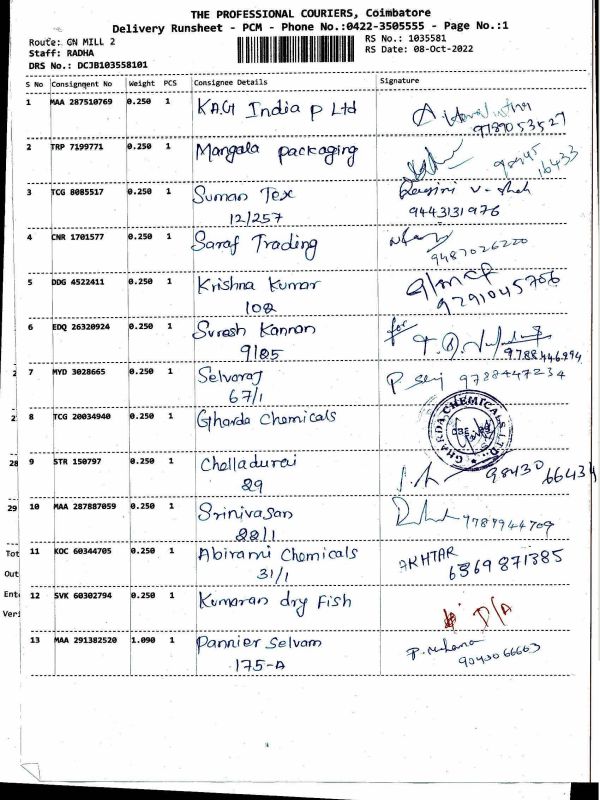 THE PROFESSIONAL COURIERS, Coimbatore
Delivery Runsheet - PCM - Phone No.:0422-3505555 - Page No.:1
Route: GN MILL 2
RS No.: 1035581
Staff: RADHA
RS Date: 08-Oct-2022
DRS No.: DCJB103558101
S No Consignment No Weight PCS Consignee Details Signature
1 MAA 287510769 0.250 1 KAGI India P Ltd
9789053527
2 TRP 7199771 0.250 1 Mangala packaging
16433
3 TCG 8085517 0.250 1 Suman Tex Ragini V. Shah
12/257 9443131976
4 CNR 1701577 0.250 1 Saraf Trading
9487026220
5 DDG 4522411 0.250 1 Krishna Kumar
102 9291045706
6 EDQ 26320924 0.250 1 Suresh Kannan for
9/85 9788446994
2 7 MYD 3028665 0.250 1 Selvaraj 9788447234
67/1
2 8 TCG 20034940 0.250 1 Gharda Chemicals
GHARDA CHEMICALS LTD. CBE
28 9 STR 150797 0.250 1 Chelladurai
29 98430 66434
29 10 MAA 287887059 0.250 1 Srinivasan
22/1 9787944709
Tot 11 KOC 60344705 0.250 1 Abirami Chemicals AKHTAR
Out 31/1 6369871385
Ent 12 SVK 60302794 0.250 1 Kumaran dry Fish D/A
Veri
13 MAA 291382520 1.090 1 Pannier Selvam
175-A 9043066663